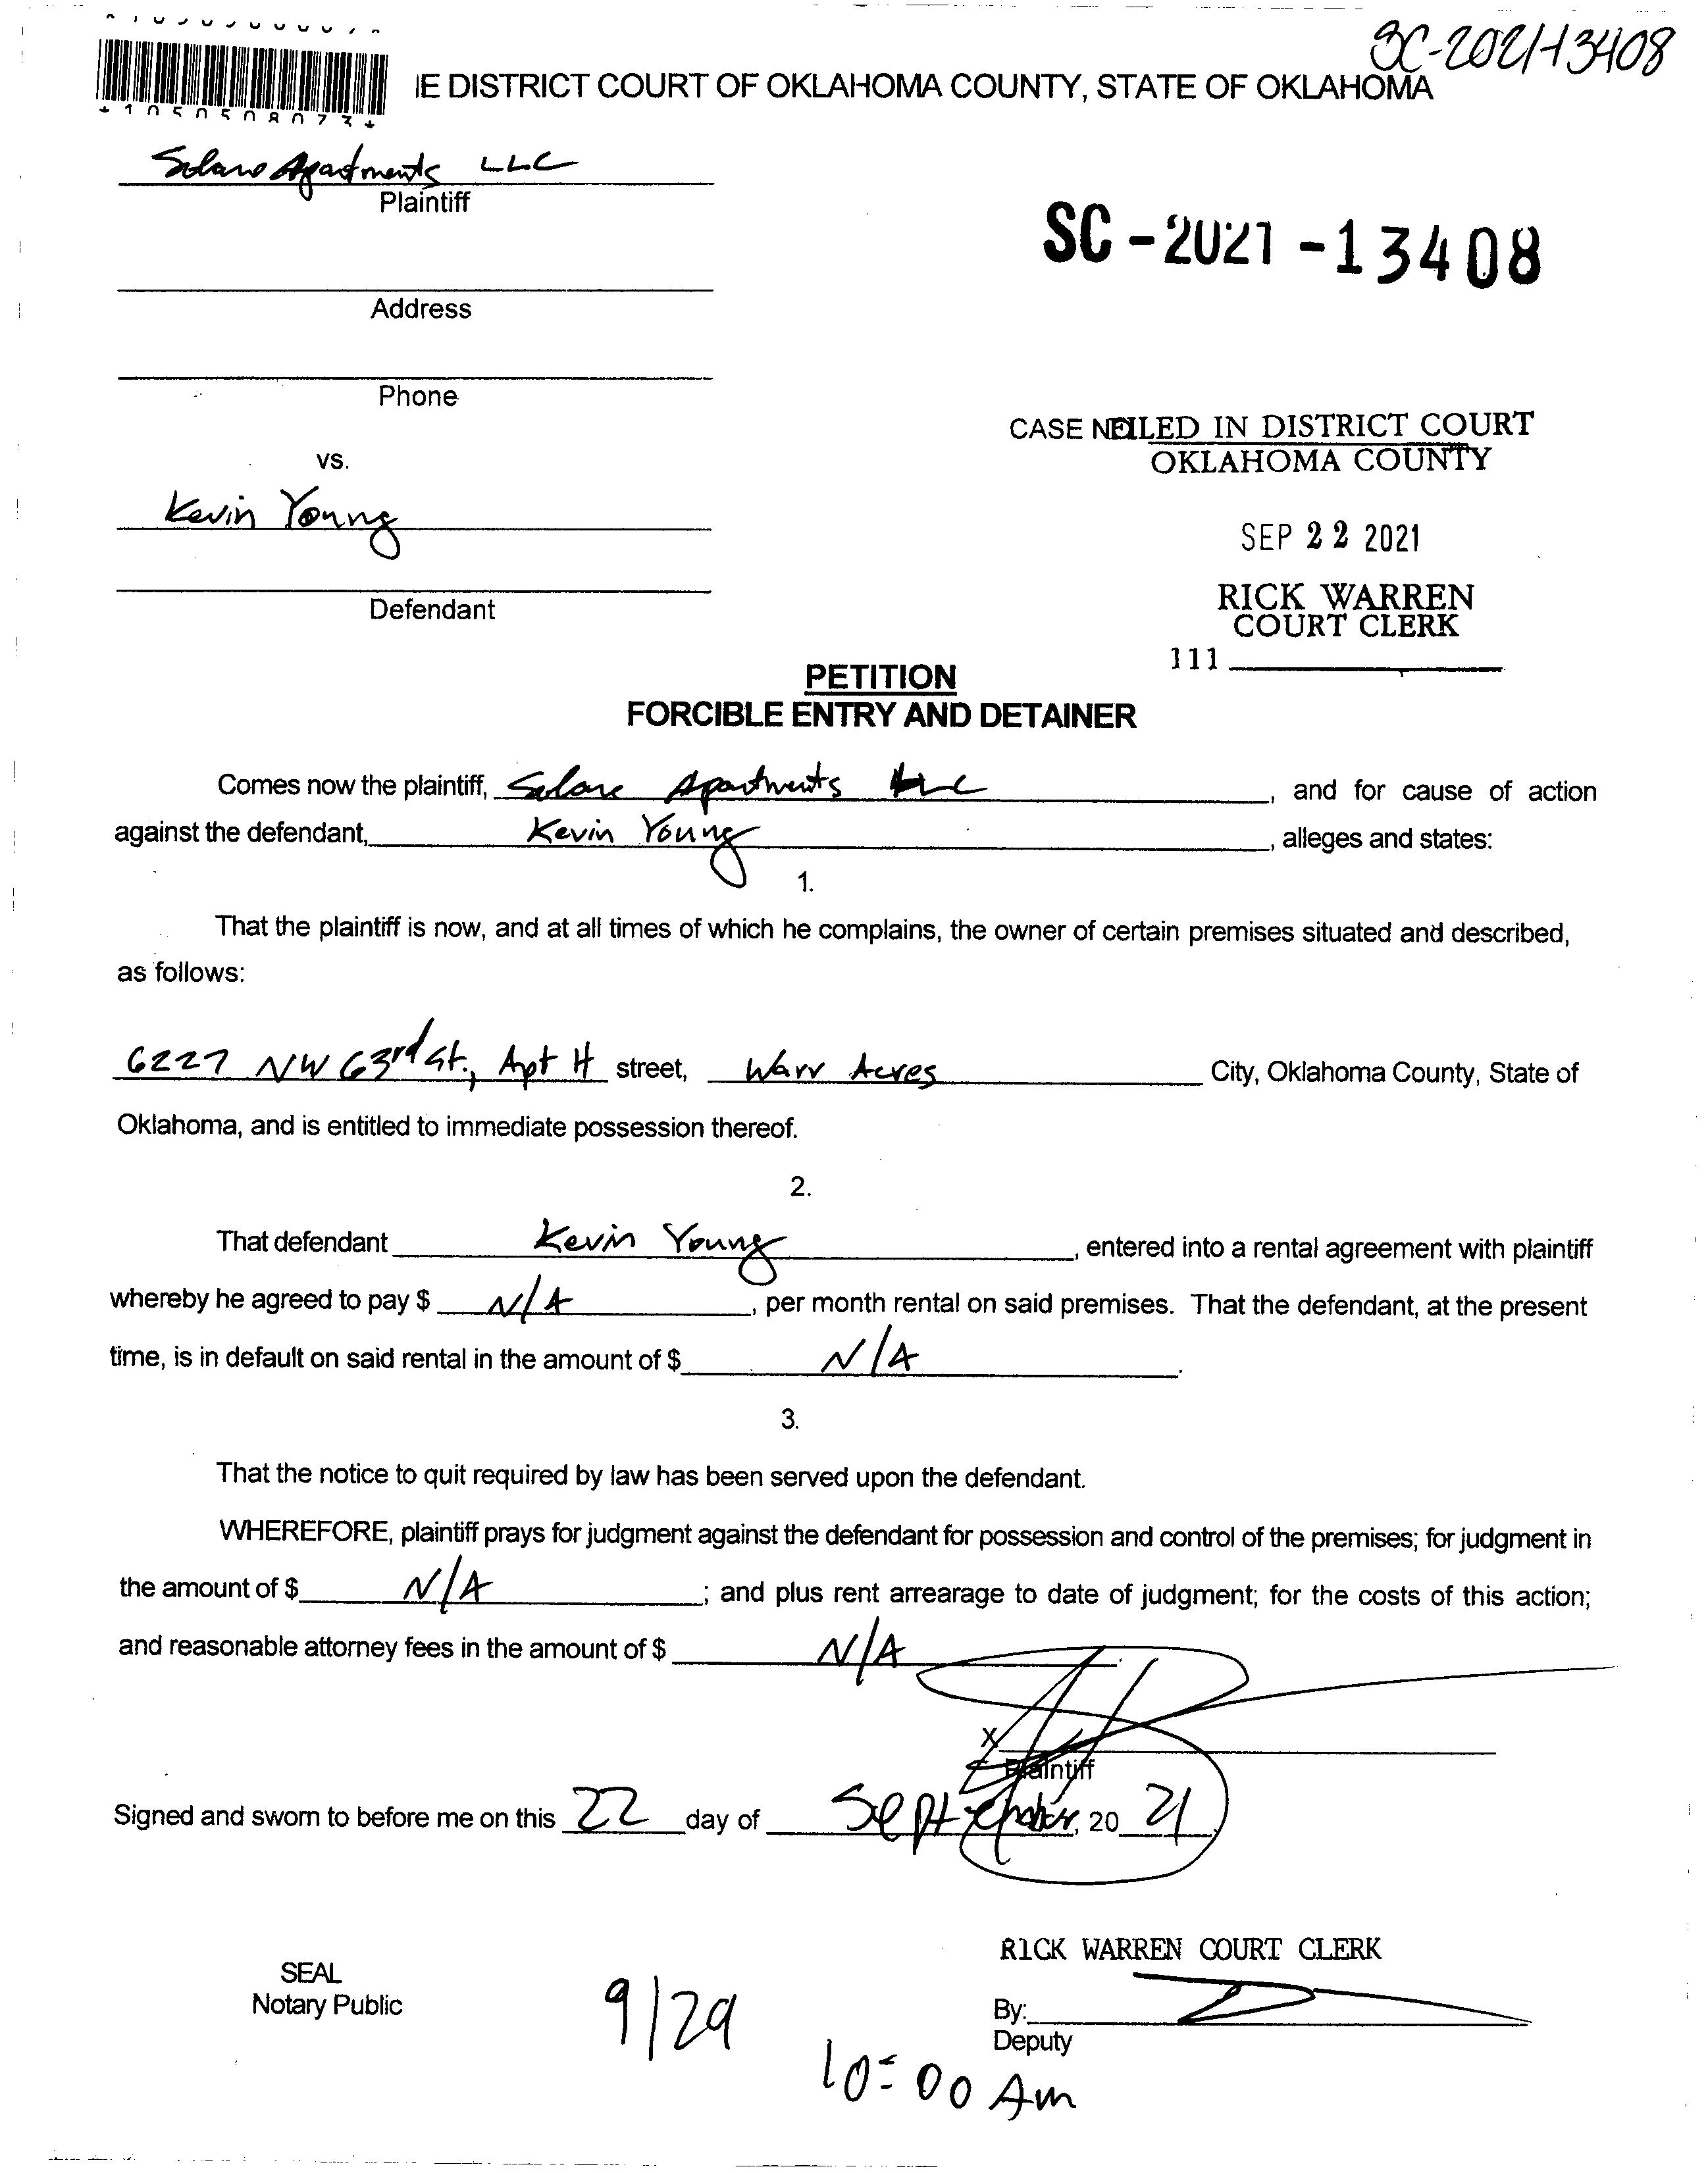 SC-2021-13408
IE DISTRICT COURT OF OKLAHOMA COUNTY, STATE OF OKLAHOMA
*1050508073*
Solare Apartments LLC
Plaintiff
SC-2021-13408
Address
Phone
CASE NO
FILED IN DISTRICT COURT
OKLAHOMA COUNTY
vs.
Kevin Young
SEP 22 2021
RICK WARREN
COURT CLERK
Defendant
111
PETITION
FORCIBLE ENTRY AND DETAINER
Comes now the plaintiff, Solare Apartments LLC, and for cause of action
against the defendant, Kevin Young, alleges and states:
1.
That the plaintiff is now, and at all times of which he complains, the owner of certain premises situated and described,
as follows:
6227 NW 63rd St., Apt H street, Warr Acres City, Oklahoma County, State of
Oklahoma, and is entitled to immediate possession thereof.
2.
That defendant Kevin Young, entered into a rental agreement with plaintiff
whereby he agreed to pay $ N/A, per month rental on said premises. That the defendant, at the present
time, is in default on said rental in the amount of $ N/A.
3.
That the notice to quit required by law has been served upon the defendant.
WHEREFORE, plaintiff prays for judgment against the defendant for possession and control of the premises; for judgment in
the amount of $ N/A; and plus rent arrearage to date of judgment; for the costs of this action;
and reasonable attorney fees in the amount of $ N/A
X
Plaintiff
Signed and sworn to before me on this 22 day of September, 20 21.
RICK WARREN COURT CLERK
SEAL
Notary Public
By:
Deputy
9/29
10:00 Am